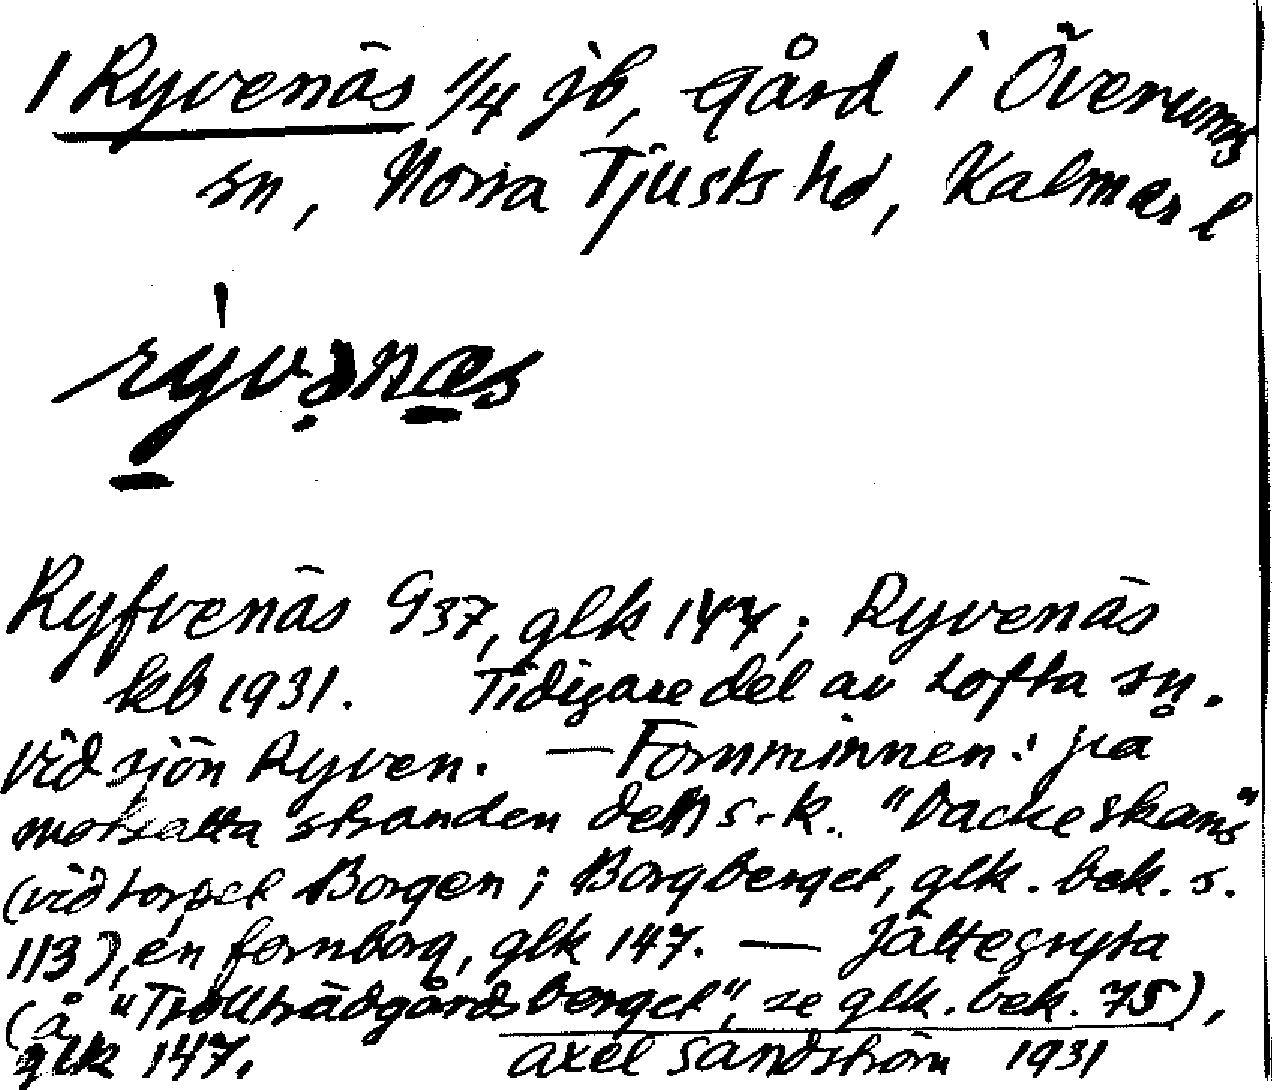 1 Ryvenäs 1/4 jb, gård i Överums
sn, Norra Tjusts hd, Kalmar l
rỳvənæs
Ryfvenäs G37, glk 147; Ryvenäs
kb 1931. Tidigare del av Lofta sn.
Vid sjön Ryven. — Fornminnen: på
motsatta stranden den s.k. "Dackeskans"
(vid torpet Borgen; Borgberget, glk. bek. s.
113), en fornborg, glk 147. — Jättegryta
(å "Trollträdgårdsberget", se glk. bek. 75),
glk 147. Axel Sandström 1931